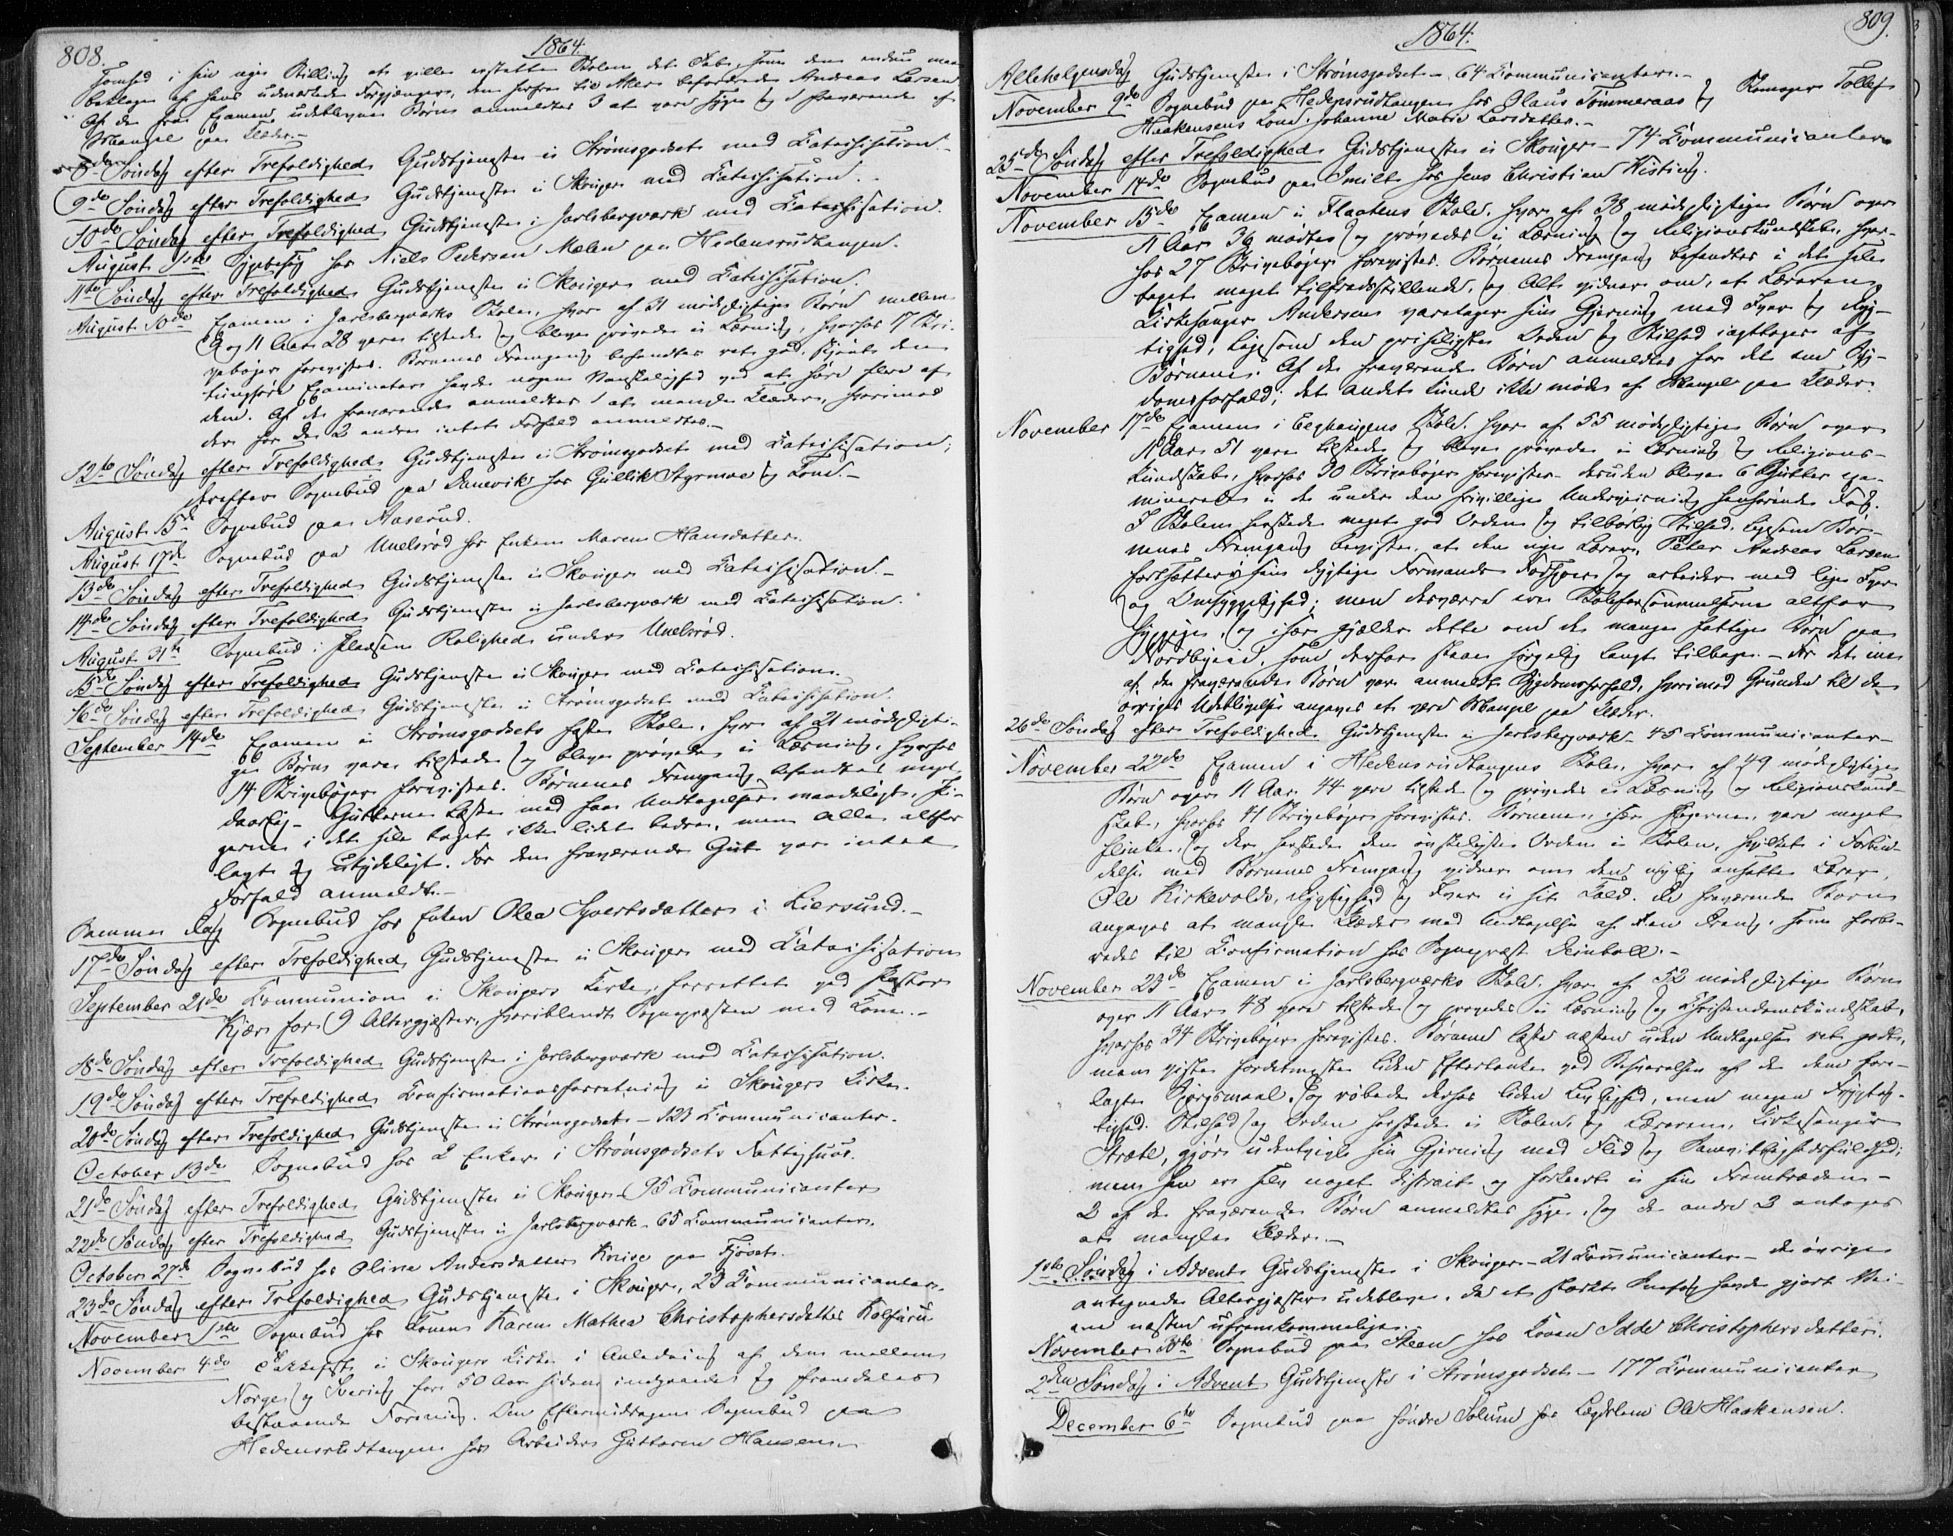 808.
1864.
Tomhed i sin nye Stilling at ville erstatte Skolen det Tab, som den endnu maa
beklage af hans udmærkede Forgjænger, den herfra til Aker befordrede Andreas Larsen
Af de fra Examen udeblevne Børn anmeldtes 3 at være syge og 1 fraværende af
Mangel paa Klæder.-
8de Søndag efter Trefoldighed Gudstjeneste i Strømsgodset med Catechisation.-
9de Søndag efter Trefoldighed Gudstjeneste i Skouger med Catechisation.-
10de Søndag efter Trefoldighed Gudstjeneste i Jarlsbergværk med Catechisation.
August Sygebesøg hos Niels Pedersen Mælen paa Hedensrudtangen.
11te Søndag efter Trefoldighed Gudstjeneste i Skouger med Catechisation.
August 10de Examen i Jarlsbergværks Skole, hvor af 31 mødepligtige Børn mellem
9 og 11 Aar 28 vare tilstede og bleve prøvede i Læsning, hvorhos 17 Skri-
vebøger forevistes. Børnenes Fremgang befandtes ret god, skjønt den
tunghøre Examinator havde nogen Vanskelighed ved at høre flere af
dem. Af de fraværende anmeldtes 1 at mangle Klæder, hvorimod
der for de 2 andre intet Forfald anmeldtes.-
12te Søndag efter Trefoldighed Gudstjeneste i Strømsgodset med Catechisation;
derefter Sognebud paa Danevik hos Gullik Styrmoe og Kone.-
August 15de Sognebud paa Aaserud.
August 17de Sognebud paa Unelsrød hos Enken Maren Hansdatter.
13de Søndag efter Trefoldighed Gudstjeneste i Skouger med Catechisation.-
14de Søndag efter Trefoldighed Gudstjeneste i Jarlsbergværk med Catechisation.
August 31te Sognebud i Pladsen Rolighed under Unelsrød.
15de Søndag efter Trefoldighed Gudstjeneste i Skouger med Catechisation.
16de Søndag efter Trefoldighed Gudstjeneste i Strømsgodset med Catechisation.
September 14de Examen i Strømsgodsets faste Skole, hvor af 21 mødepligti-
ge Børn vare tilstede og bleve prøvede i Læsning, hvorhos
14 Skrivebøger forevistes. Børnenes Fremgang befandtes meget
daarlig. Gutterne læste med faa Undtagelser maadeligt, Pi-
gerne i det hele taget ikke lidet bedre, men alle altfor
lavt og utydeligt. For den fraværende Gut var intet
Forfald anmeldt.-
Samme Dag Sognebud hos Enken Olea Syvertsdatter i Liersund.-
17de Søndag efter Trefoldighed Gudstjeneste i Skouger med Catechisation
September 21de Communion i Skougers Kirke, forrettet ved Pastor
Kjær for 9 Altergjæster, hvoriblandt Sognepræsten med Kone.-
18de Søndag efter Trefoldighed Gudstjeneste i Jarlsbergværk med Catechisation.
19de Søndag efter Trefoldighed Confirmationsforretning i Skougers Kirke.
20de Søndag efter Trefoldighed Gudstjeneste i Strømsgodset - 123 Communicanter.
October 13de Sognebud hos 2 Enker i Strømsgodsets Fattighuus.
21de Søndag efter Trefoldighed Gudstjeneste i Skouger - 95 Communicanter
22de Søndag efter Trefoldighed Gudstjeneste i Jarlsbergværk - 65 Communicanter.
October 27de Sognebud hos Oline Andersdatter Knive paa Fjøset.
23de Søndag efter Trefoldighed Gudstjeneste i Skouger, 23 Communicanter.
November 1ste Sognebud hos Konen Karen Mathea Christophersdatter Kolfaru
November 4de Takkefest i Skougers Kirke i Anledning af den mellem
Norge og Sverig for 50 Aar siden indgaaede og fremdeles
bestaaende Forening. Om Eftermiddagen Sognebud paa
Hedensrudtangen hos Arbeider Guttorm Hansen.-
1864.
809.
Allehelgensdag Gudstjeneste i Strømsgodset - 64 Communicanter.-
November 9de Sognebud paa Hedensrudtangen hos Claus Tømmeraas og Tollef
Haakensens Kone, Johanne Marie Larsdatter.-
25de Søndag efter Trefoldighed Gudstjeneste i Skouger - 74 Communicanter
November 14de Sognebud paa Smilt hos Jens Christian Wisting.
November 15de Examen i Flaatens Skole, hvor af 38 mødepligtige Børn over
11 Aar 36 mødte og prøvedes i Læsning og Religionskundskab, hvor-
hos 27 Skrivebøger forevistes. Børnenes Fremgang befandtes i det hele
taget meget tilfredsstillende, og Alt vidner om, at Læreren
Kirkesanger Andersen varetager sin Gjerning med Iver og Dyg-
tighed, ligesom den priseligste Orden og Stilhed iagttages af
Børnene. Af de fraværende Børn anmeldtes for det ene Syg-
domsforfald; det andet kunde ikke møde af Mangel paa Klæder.
November 17de Examen i Skole, hvor af 55 mødepligtige Børn over
11 Aar 51 vare tilstede og bleve prøvede i Læsning og Religions-
kundskab, hvorhos 30 Skrivebøger forevistes - desuden bleve 6 Gutter exa-
minerede i de under den frivillige Undervisning henhørende Fag.
I Skolen herskede meget god Orden og tilbørlig Stilhed, ligesom Bør-
nenes Fremgang beviste, at den nye Lærer, Peter Andreas Larsen
fortsætter i sin dygtige Formands Fodspor og arbeider med lige Iver
og Omhyggelighed; men desværre ere Skoleforsømmelserne altfor
hyppige, og især gjælder dette om de mange fattige Børn paa
Nordbyeie, som derfor staae sørgelig langt tilbage. - For det ene
af de fraværende Børn var anmeldt Sygdomsforfald, hvorimod Grunden til de
øvriges Udeblivelse angaves at være Mangel paa Klæder.
26de Søndag efter Trefoldighed Gudstjeneste i Jarlsbergværk - 45 Communicanter
November 22de Examen i Hedensrudtangens Skole, hvor af 49 mødepligtige
Børn over 11 Aar 44 vare tilstede og prøvedes i Læsning og Religionskund-
skab, hvorhos 41 Skrivebøger forevistes. Børnene, især Pigerne, vare meget
flinke, og der herskede den ønskeligste Orden i Skolen, hvilket i Forbin-
delse med Børnenes Fremgang vidner om den nylig ansatte Lærer,
Ole Kirkevolds, Dygtighed og Iver i sit Kald. De fraværende Børn
angaves at mangle Klæder med Undtagelse af den Dreng, som forbe-
redes til Confirmation hos Sognepræst Deinboll.-
November 23de Examen i Jarlsbergværks Skole, hvor af 53 mødepligtige Børn
over 11 Aar 48 vare tilstede og prøvedes i Læsning og Christendomskundskab,
hvorhos 34 Skrivebøger forevistes. Børnene læste næsten uden Undtagelse ret godt,
men viste fordetmeste liden Eftertanke ved Besvarelsen af de dem fore-
lagte Spørgsmaal, og røbede derhos liden Livlighed, men megen Frygtag-
tighed. Stilhed og Orden herskede i Skolen, og Læreren, Kirkesanger
Stræte, gjør udentvivl sin Gjerning med Flid og Samvittighedsfuldhed;
men han er selv noget distrait og forkeert i sin Fremtræden -
2 af de fraværende Børn anmeldtes syge, og de andre 3 antoges
at mangle Klæder.-
1ste Søndag i Advent Gudstjeneste i Skouger - 21 Communicanter - de øvrige
antegnede Altergjæster udebleve, da et stærkt Snefog havde gjort Vei-
ene næsten ufremkommelige.
November 30te Sognebud paa Steen hos Konen Idde Christophersdatter.
2den Søndag i Advent Gudstjeneste i Strømsgodset - 177 Communicanter
December 6te Sognebud paa søndre Solum hos Lægdslem Ole Haakensen.